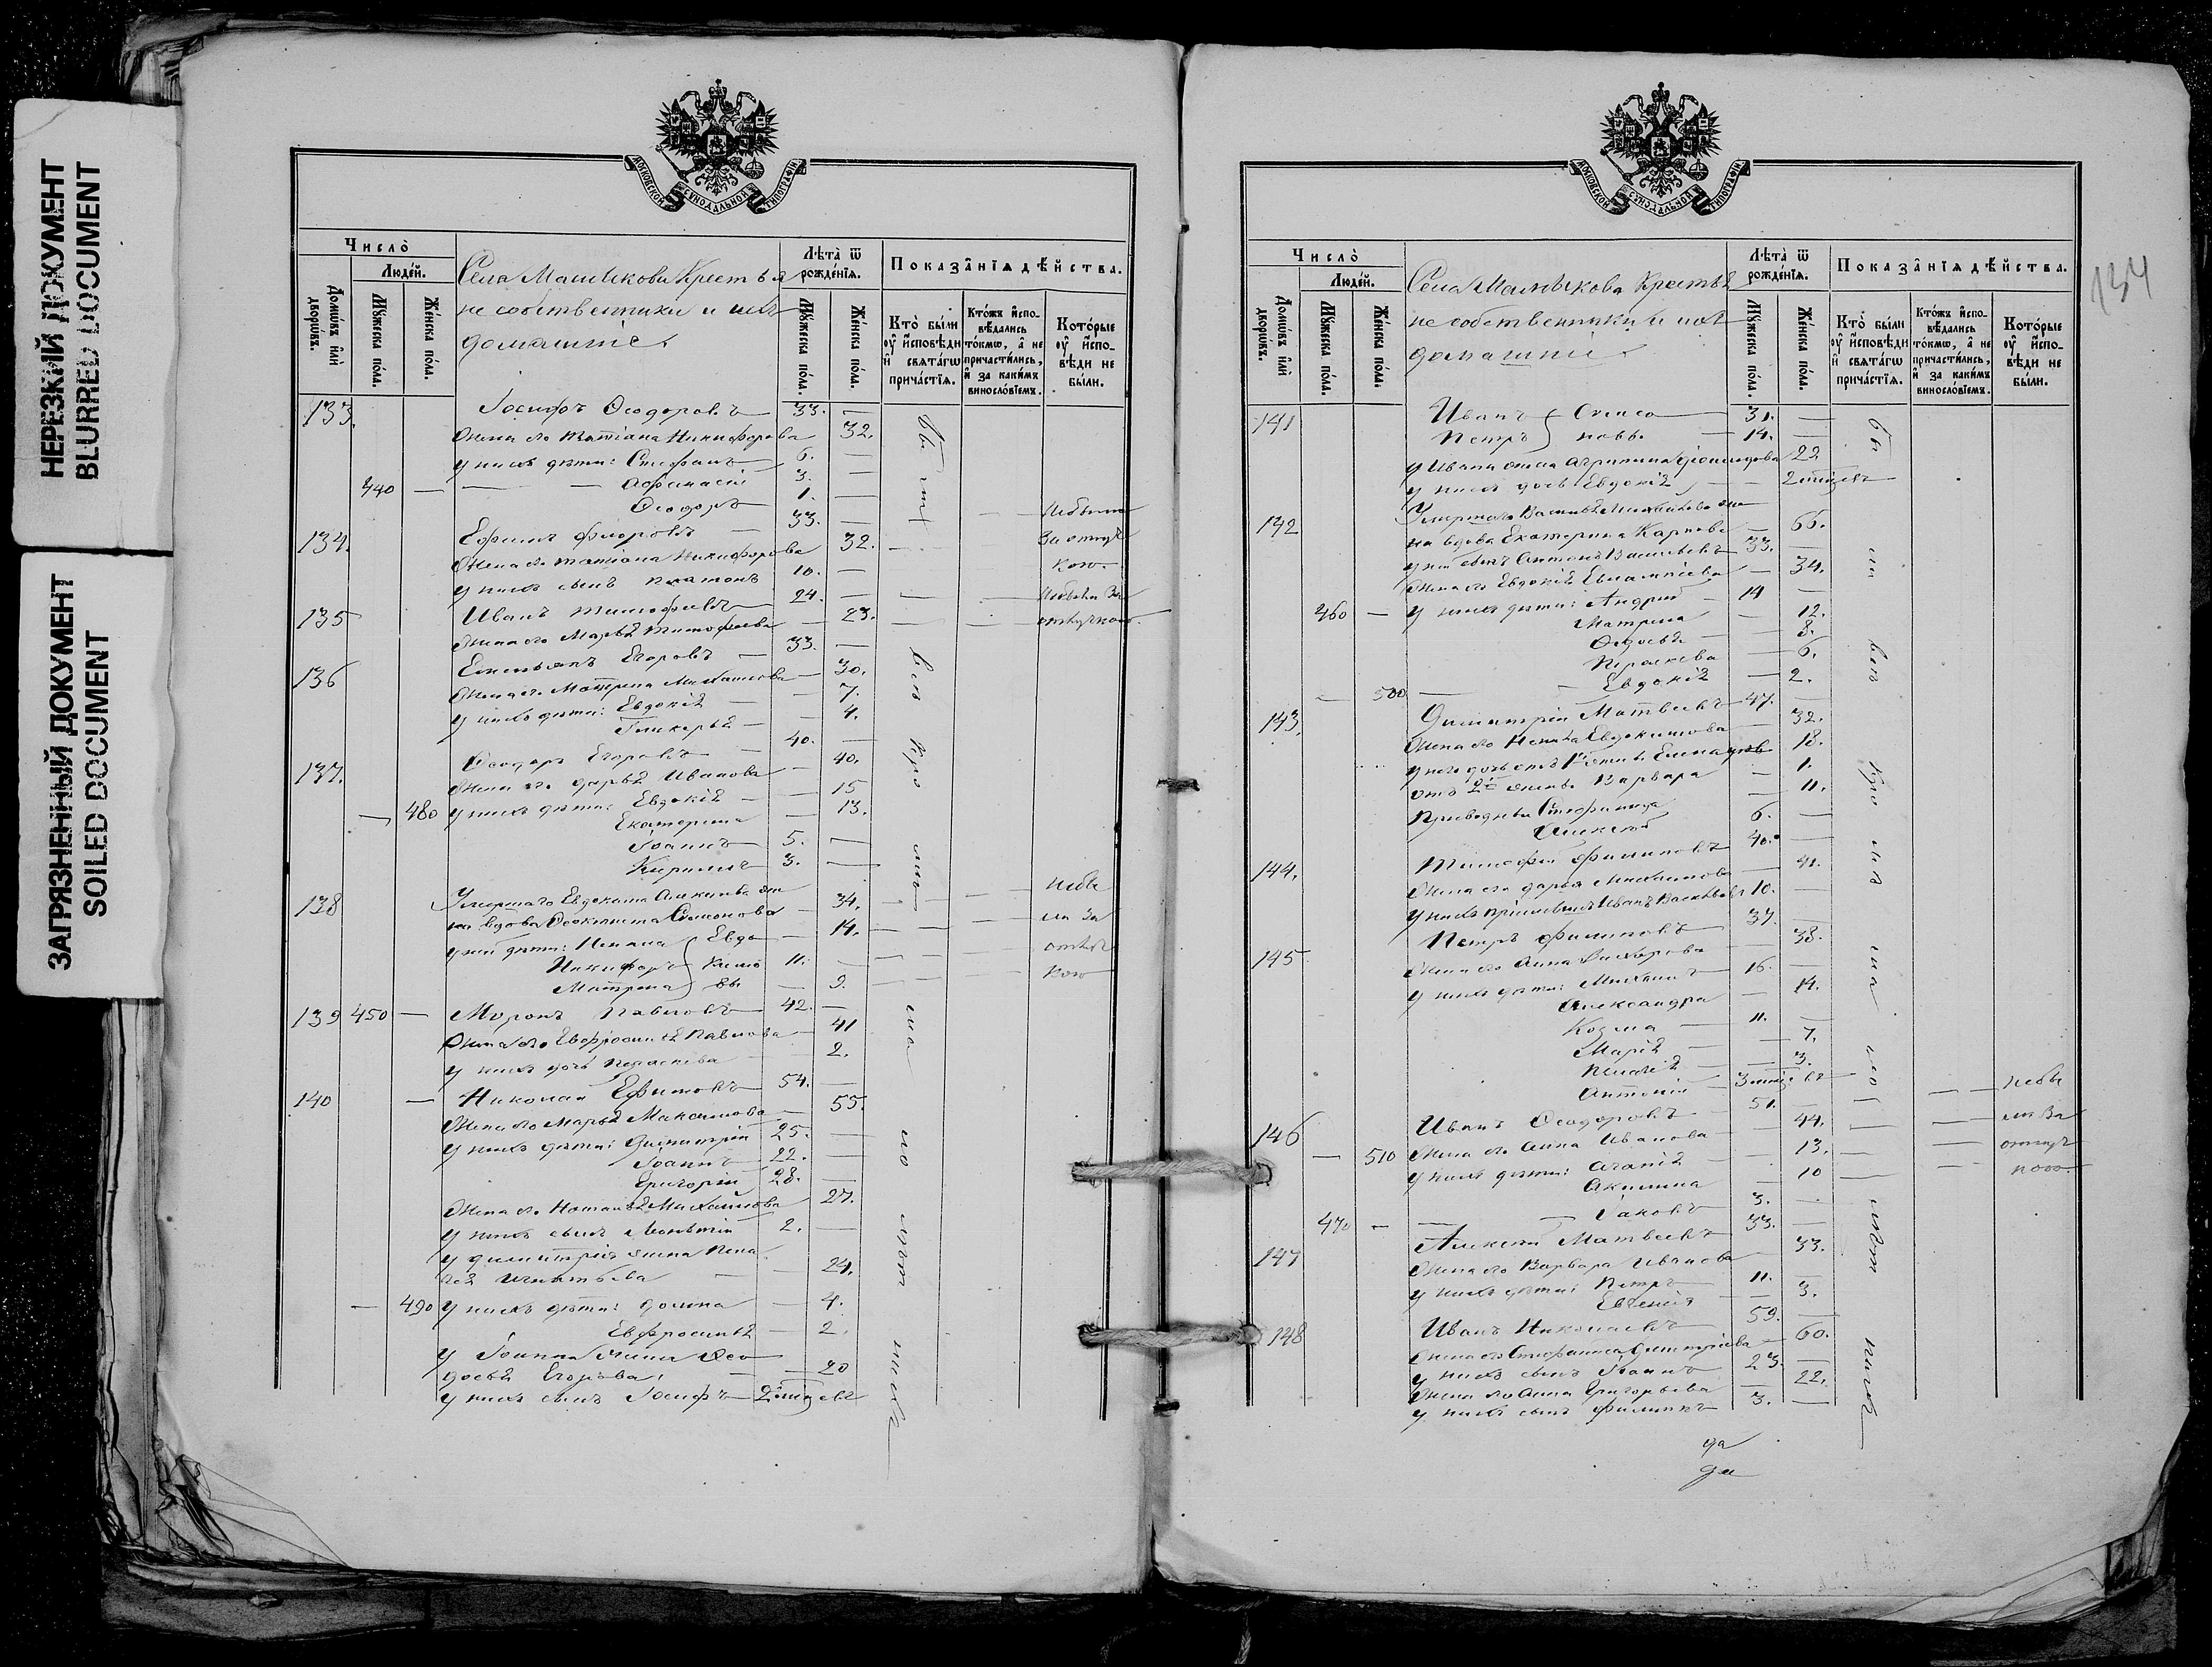 НЕРЕЗКИЙ ДОКУМЕНТ
BLURRED DOCUMENT
ЗАГРЯЗНЕННЫЙ ДОКУМЕНТ
SOILED DOCUMENT
МОСКОВСКОЙ СѴНОДАЛЬНОЙ ТИПОГРАФІИ
Число̀
Людéй.
Домѡ́въ и҆лѝ дворѡ́въ.
Мꙋ́жеска по́ла.
Же́нска по́ла.
Села Машкова Крестья
не собственники и ихъ
домашніе.
Лѣта̀ ѿ рожде́нїѧ.
Мꙋ́жеска по́ла.
Же́нска по́ла.
Показа̂нїѧ дѣ́йства.
Кто̀ бы́ли оу҆ и҆́сповѣди и҆ свѧта́гѡ прича́стїѧ.
Кто́жъ и҆спо-вѣ́дались то́кмѡ, а҆ не причасти́лись, и҆ за каки́мъ винословїемъ.
Кото́рые оу҆ и҆спо-вѣди не бы́ли.
133. Іосифъ Ѳеодоровъ 33. —
Жена его Татіана Никифорова 32.
у нихъ дѣти: Стефанъ 6. —
440 — Афанасій 3. —
Ѳеодоръ 1. —
134. Ефимъ Флоровъ 33. —
Жена его Татіана Никифорова 32.
у нихъ сынъ Платонъ 10. —
135 Иванъ Тимофеевъ 24. —
Жена его Марья Тимофеева — 23.
136 Емельянъ Егоровъ 33. —
Жена его Матрена Михайлова — 30.
у нихъ дѣти: Евдокія — 7.
Гликерья — 4.
137. Ѳеодоръ Егоровъ 40. —
Жена его Дарья Иванова — 40.
— 480 у нихъ дѣти: Евдокія — 15
Екатерина — 13.
Іоаннъ 5. —
Кириллъ 3. —
138 Умершаго Евдокима Алексѣева же
на вдова Ѳеоктиста Симонова — 34.
у ней дѣти: Евдо — 14.
Никифоръ кимо 11. —
Матрена вы — 9.
139 450 — Миронъ Павловъ 42. —
Жена его Евфросинья Павлова — 41
у нихъ дочь Параскева — 2.
140 — Николай Ефимовъ 54. —
Жена его Марья Максимова — 55.
у нихъ дѣти: Димитрій 25. —
Іоаннъ 22. —
Григорій 28. —
Жена его Наталья Михайлова 27.
у нихъ сынъ Леонтій 2. —
у Димитрія жена Пела
гея Игнатьева — 24.
— 490 у нихъ дѣти: Домна — 4.
Евфросинья — 2.
у Іоанна жена Ѳео
досья Егорова — 20
у нихъ сынъ Іосифъ 2 мѣсяцевъ
134
МОСКОВСКОЙ СѴНОДАЛЬНОЙ ТИПОГРАФІИ
Число̀
Людéй.
Домѡ́въ и҆лѝ дворѡ́въ.
Мꙋ́жеска по́ла.
Же́нска по́ла.
не собственники и ихъ
домашніе
Лѣта̀ ѿ рожде́нїѧ.
Мꙋ́жеска по́ла.
Же́нска по́ла.
Показа̂нїѧ дѣ́йства.
Кто̀ бы́ли оу҆ и҆́сповѣди и҆ свѧта́гѡ прича́стїѧ.
Кто́жъ и҆спо-вѣ́дались то́кмѡ, а҆ не причасти́лись, и҆ за каки́мъ винословїемъ.
Кото́рые оу҆ и҆спо-вѣди не бы́ли.
141 Иванъ 31. —
Петръ новы 14. —
у Ивана жена Агриппина 22
у нихъ дочь Евдокія — 2 мѣсяцевъ
142 Умершаго Василья Михайлова же
на вдова Екатерина Карпова — 66.
у ней сынъ Антонъ Васильевъ 33. —
Жена его Евдокія Евлампіева — 34.
460 — у нихъ дѣти: Андрей 14 —
Матрена — 12.
Ѳедосья — 8.
Параскева — 6.
— 500 — Евдокія — 2.
143. Димитрій Матвеевъ 47. —
Жена его Евдокимова — 32.
18.
отъ 2й жены Варвара — 1.
Стефанида — 11.
Алексей 6. —
144. Тимофей Филиповъ 40. —
Жена его Дарья Михайлова — 41.
у нихъ Иванъ Васильевъ 10. —
145 Петръ Филиповъ 37. —
Жена его Анна — 38.
у нихъ дѣти: Михаилъ 16. —
Александра — 14.
Козма 11. —
Марія — 7.
Пелагея — 3.
Антоній 3 мѣсяцевъ
146 Иванъ Ѳеодоровъ 51. —
— 510 Жена его Анна Иванова — 44.
у нихъ дѣти: Агапія — 13.
Акилина — 10
470 — Іаковъ 3. —
147 Алексей Матвеевъ 33. —
Жена его Варвара Иванова 33.
у нихъ дѣти: Петръ 11. —
Евгенія — 3.
148 Иванъ Николаевъ 59. —
Жена его Стефанида Димитріева — 60.
у нихъ сынъ Іоаннъ 23. —
Жена его Анна Григорьева — 22.
у нихъ сынъ Филиппъ 3. —
да
да